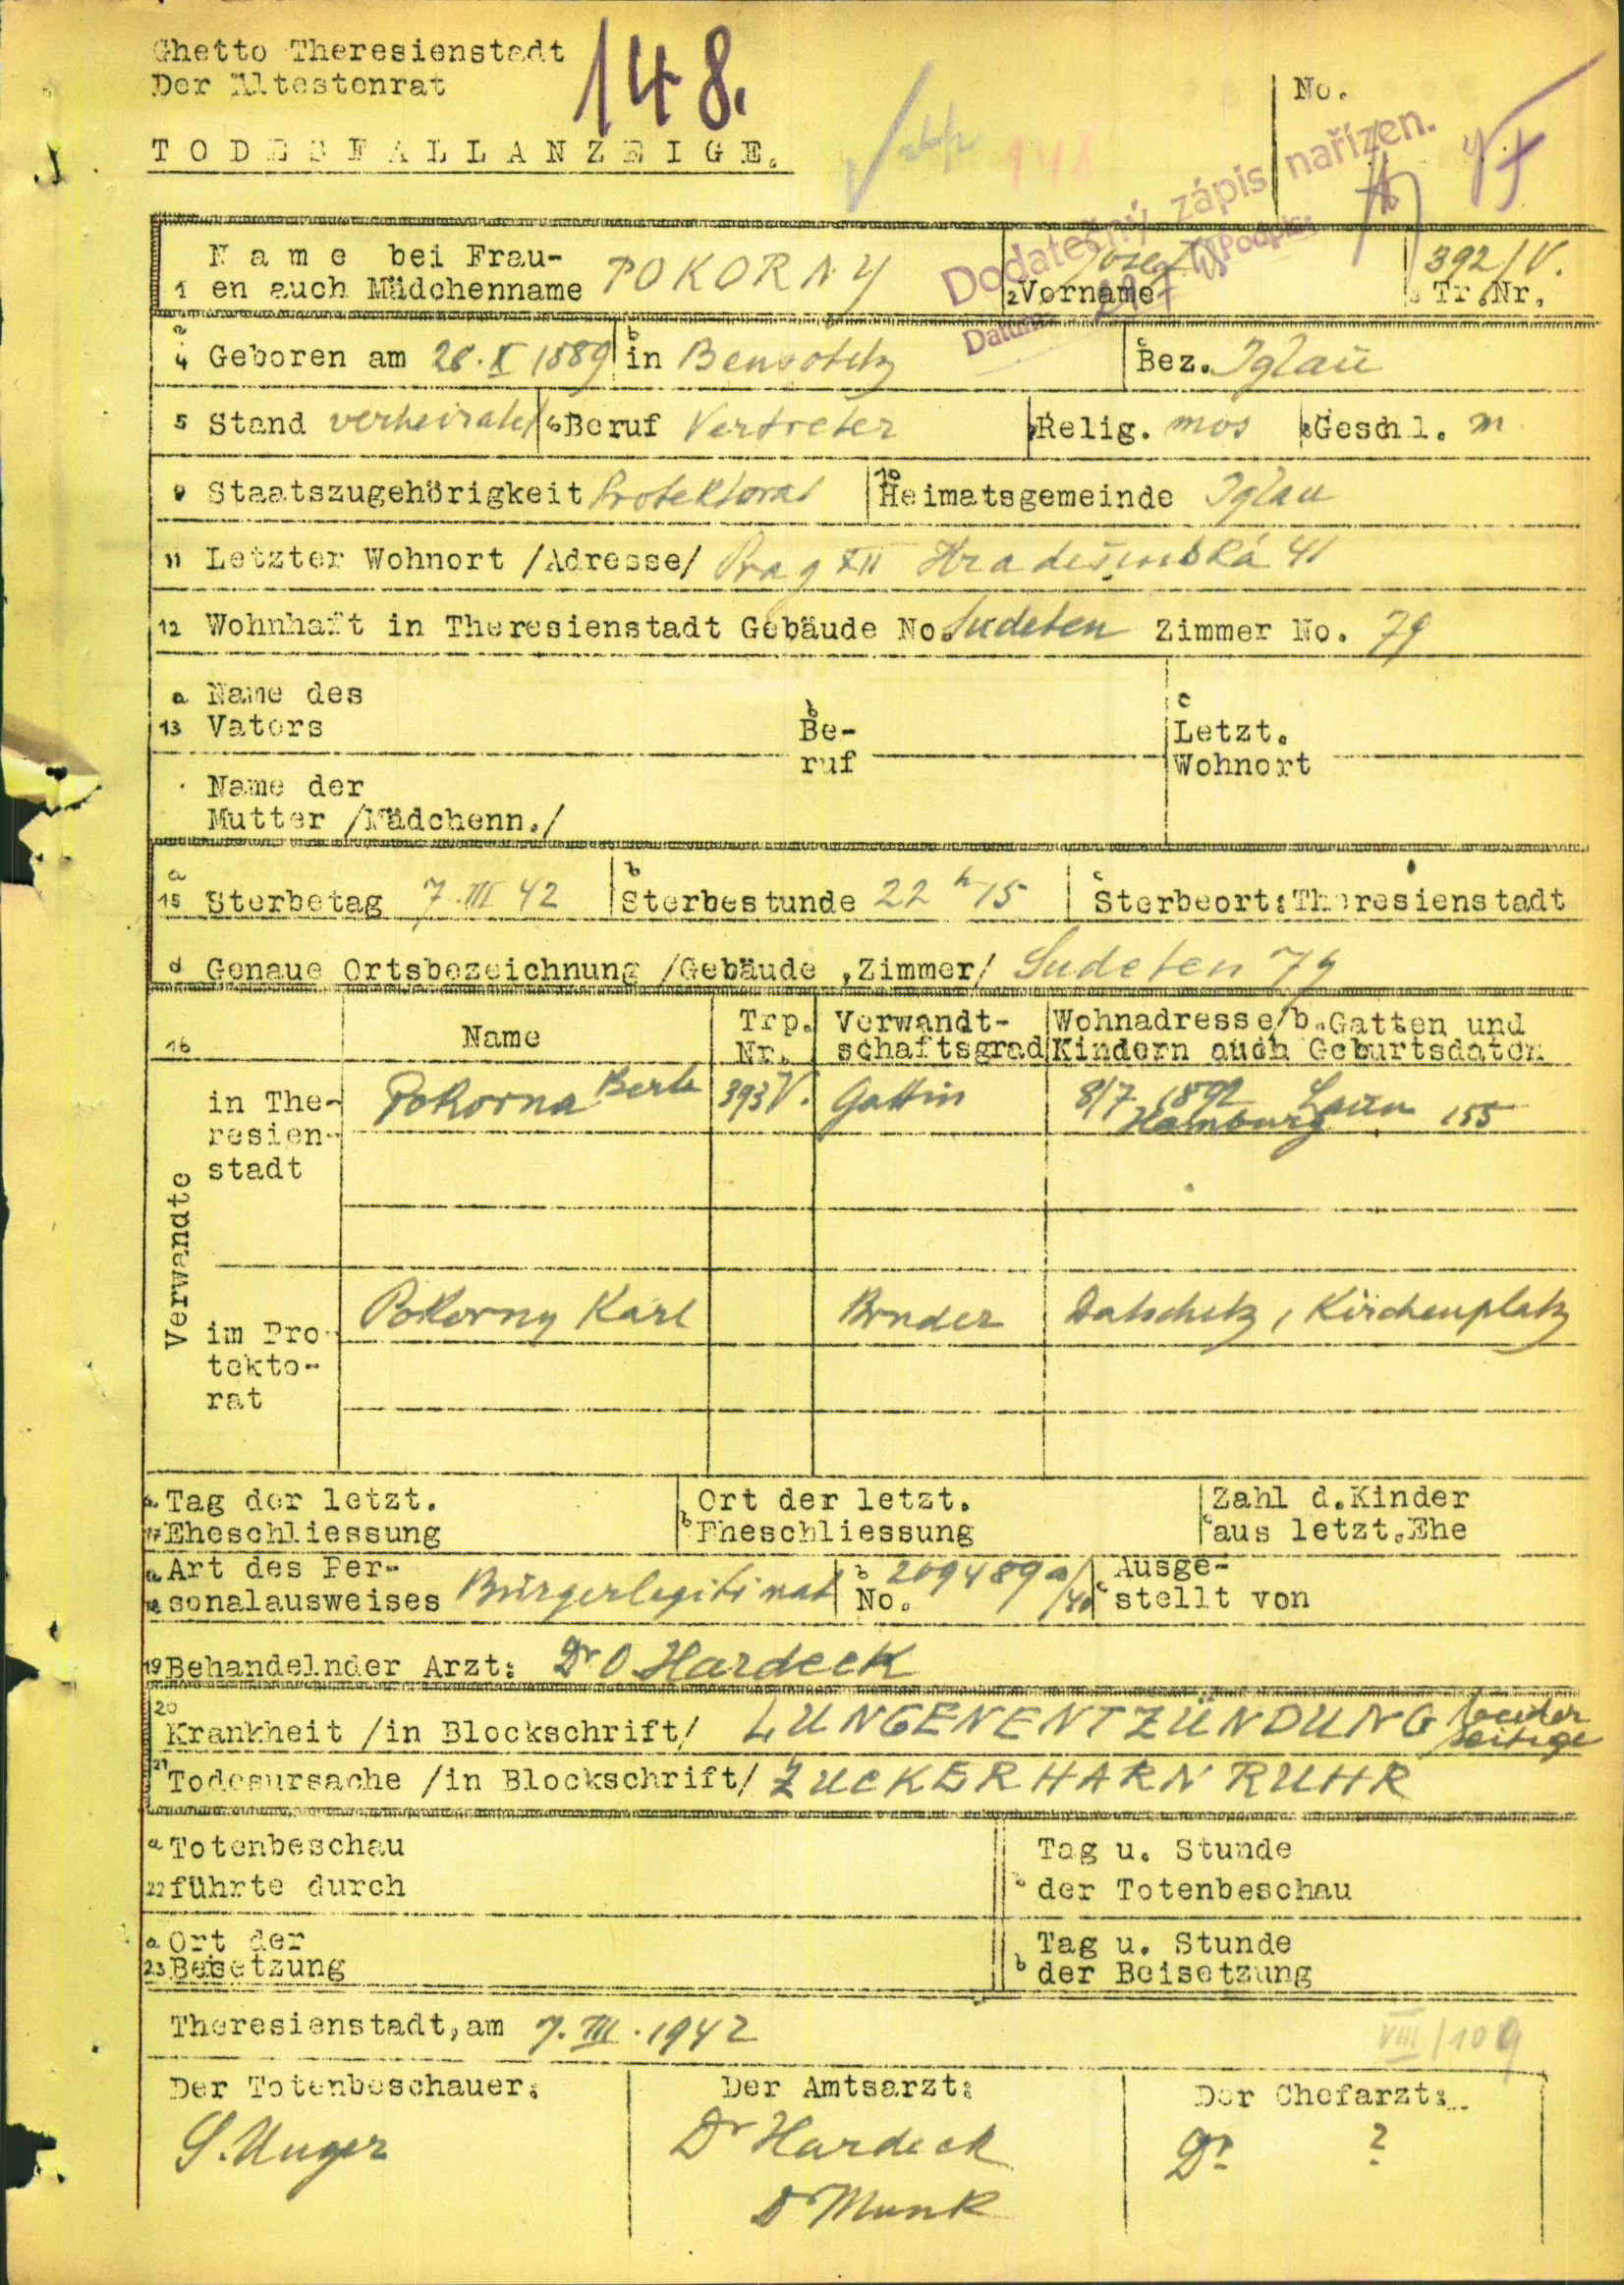 Ghetto Theresienstadt
Der Ältestenrat
148.
No.
TODESFALLANZEIGE.
148
Dodatečný zápis nařízen.
Datum Podpis:
Name bei Frau-
1 en auch Mädchenname POKORNY
Josef
2 Vorname
392/V.
3 Tr.Nr.
a
4 Geboren am 28. X 1889 b in c Bez. Iglau
5 Stand verheiratet 6 Beruf Vertreter 7 Relig. mos 8 Geschl. m
9 Staatszugehörigkeit Protektorat 10 Heimatsgemeinde Iglau
11 Letzter Wohnort /Adresse/ Prag XII Hradešínská 41
12 Wohnhaft in Theresienstadt Gebäude No. Sudeten Zimmer No. 79
a Name des
13 Vaters
b Be-
ruf
c Letzt.
Wohnort
Name der
Mutter /Mädchenn./
a
15 Sterbetag 7. III 42 b Sterbestunde 22 h 15 c Sterbeort: Theresienstadt
d Genaue Ortsbezeichnung /Gebäude ,Zimmer/ Sudeten 79
16 Name
Trp.
Nr.
Verwandt-
schaftsgrad
Wohnadresse/b.Gatten und
Kindern auch Geburtsdaten
Verwandte
in The-
resien-
stadt
Pokorna Berta 393 V. Gattin 8/7 1892 Laun 155
Hamburg
im Pro-
tekto-
rat
Pokorny Karl Bruder Datschitz, Kirchenplatz
a Tag der letzt.
17 Eheschliessung
b Ort der letzt.
Eheschliessung
c Zahl d.Kinder
aus letzt.Ehe
a Art des Per-
18 sonalausweises Bürgerlegitimat
b No. 209489a/40
c Ausge-
stellt von
19 Behandelnder Arzt: Dr O. Hardeck
20
Krankheit /in Blockschrift/ LUNGENENTZÜNDUNG beider
seitige
21 Todesursache /in Blockschrift/ ZUCKERHARNRUHR
a Totenbeschau
22 führte durch
b Tag u. Stunde
der Totenbeschau
a Ort der
23 Beisetzung
b Tag u. Stunde
der Beisetzung
Theresienstadt, am 7. III. 1942
VIII/109
Der Totenbeschauer:
S. Unger
Der Amtsarzt:
Dr Hardeck
Dr Munk
Der Chefarzt:
Dr. ?